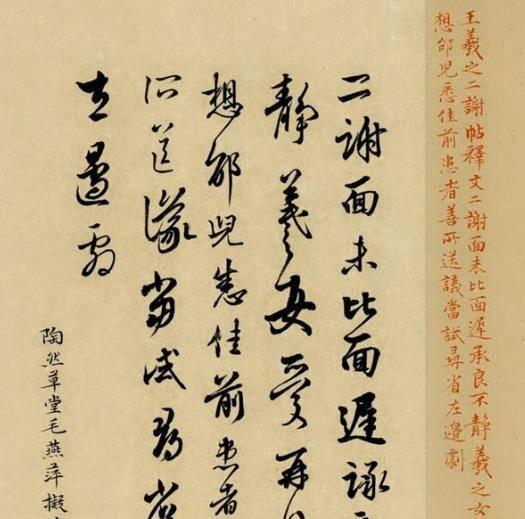 王羲之二謝帖釋文二謝面未比面遲承良不靜羲之女
想邰兒悉佳前患者善所送議當試尋省左邊劇
二謝面未比面遲詠
靜羲之女愛再
想邰兒悉佳前患者
所送議當試尋省
左邊劇
陶然草堂毛燕萍擬